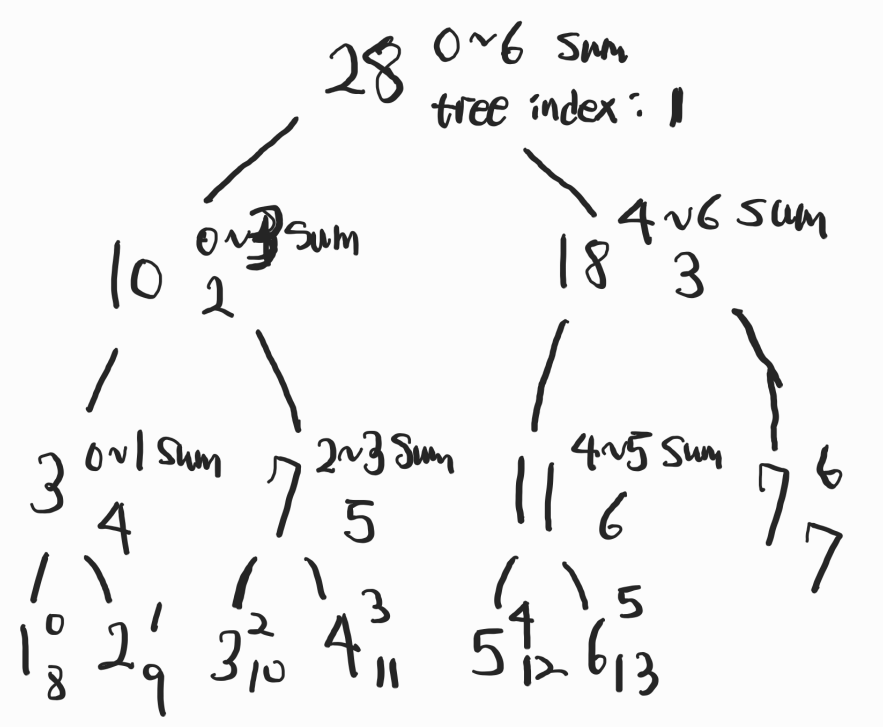 28 0~6 sum
tree index : 1
10 0~3 sum
2
18 4~6 sum
3
3 0~1 sum
4
7 2~3 sum
5
11 4~5 sum
6
7 6
7
1 0
8
2 1
9
3 2
10
4 3
11
5 4
12
6 5
13